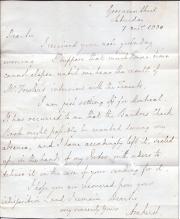 Saturday
Dear Sir
I received your note yesterday
morning. I suppose that much time
cannot elapse until we hear the result of
interview with the
I am just setting off for Montreal.
It has occurred to me that the Bankers Cash
Book might possibly be wanted during my
absence, and I have accordingly left it, sealed
up in the hands of my
deliver it in the case of your sending for it.
I hope you are recovered from your
indisposition and I remain dear Sir
very sincerely yours